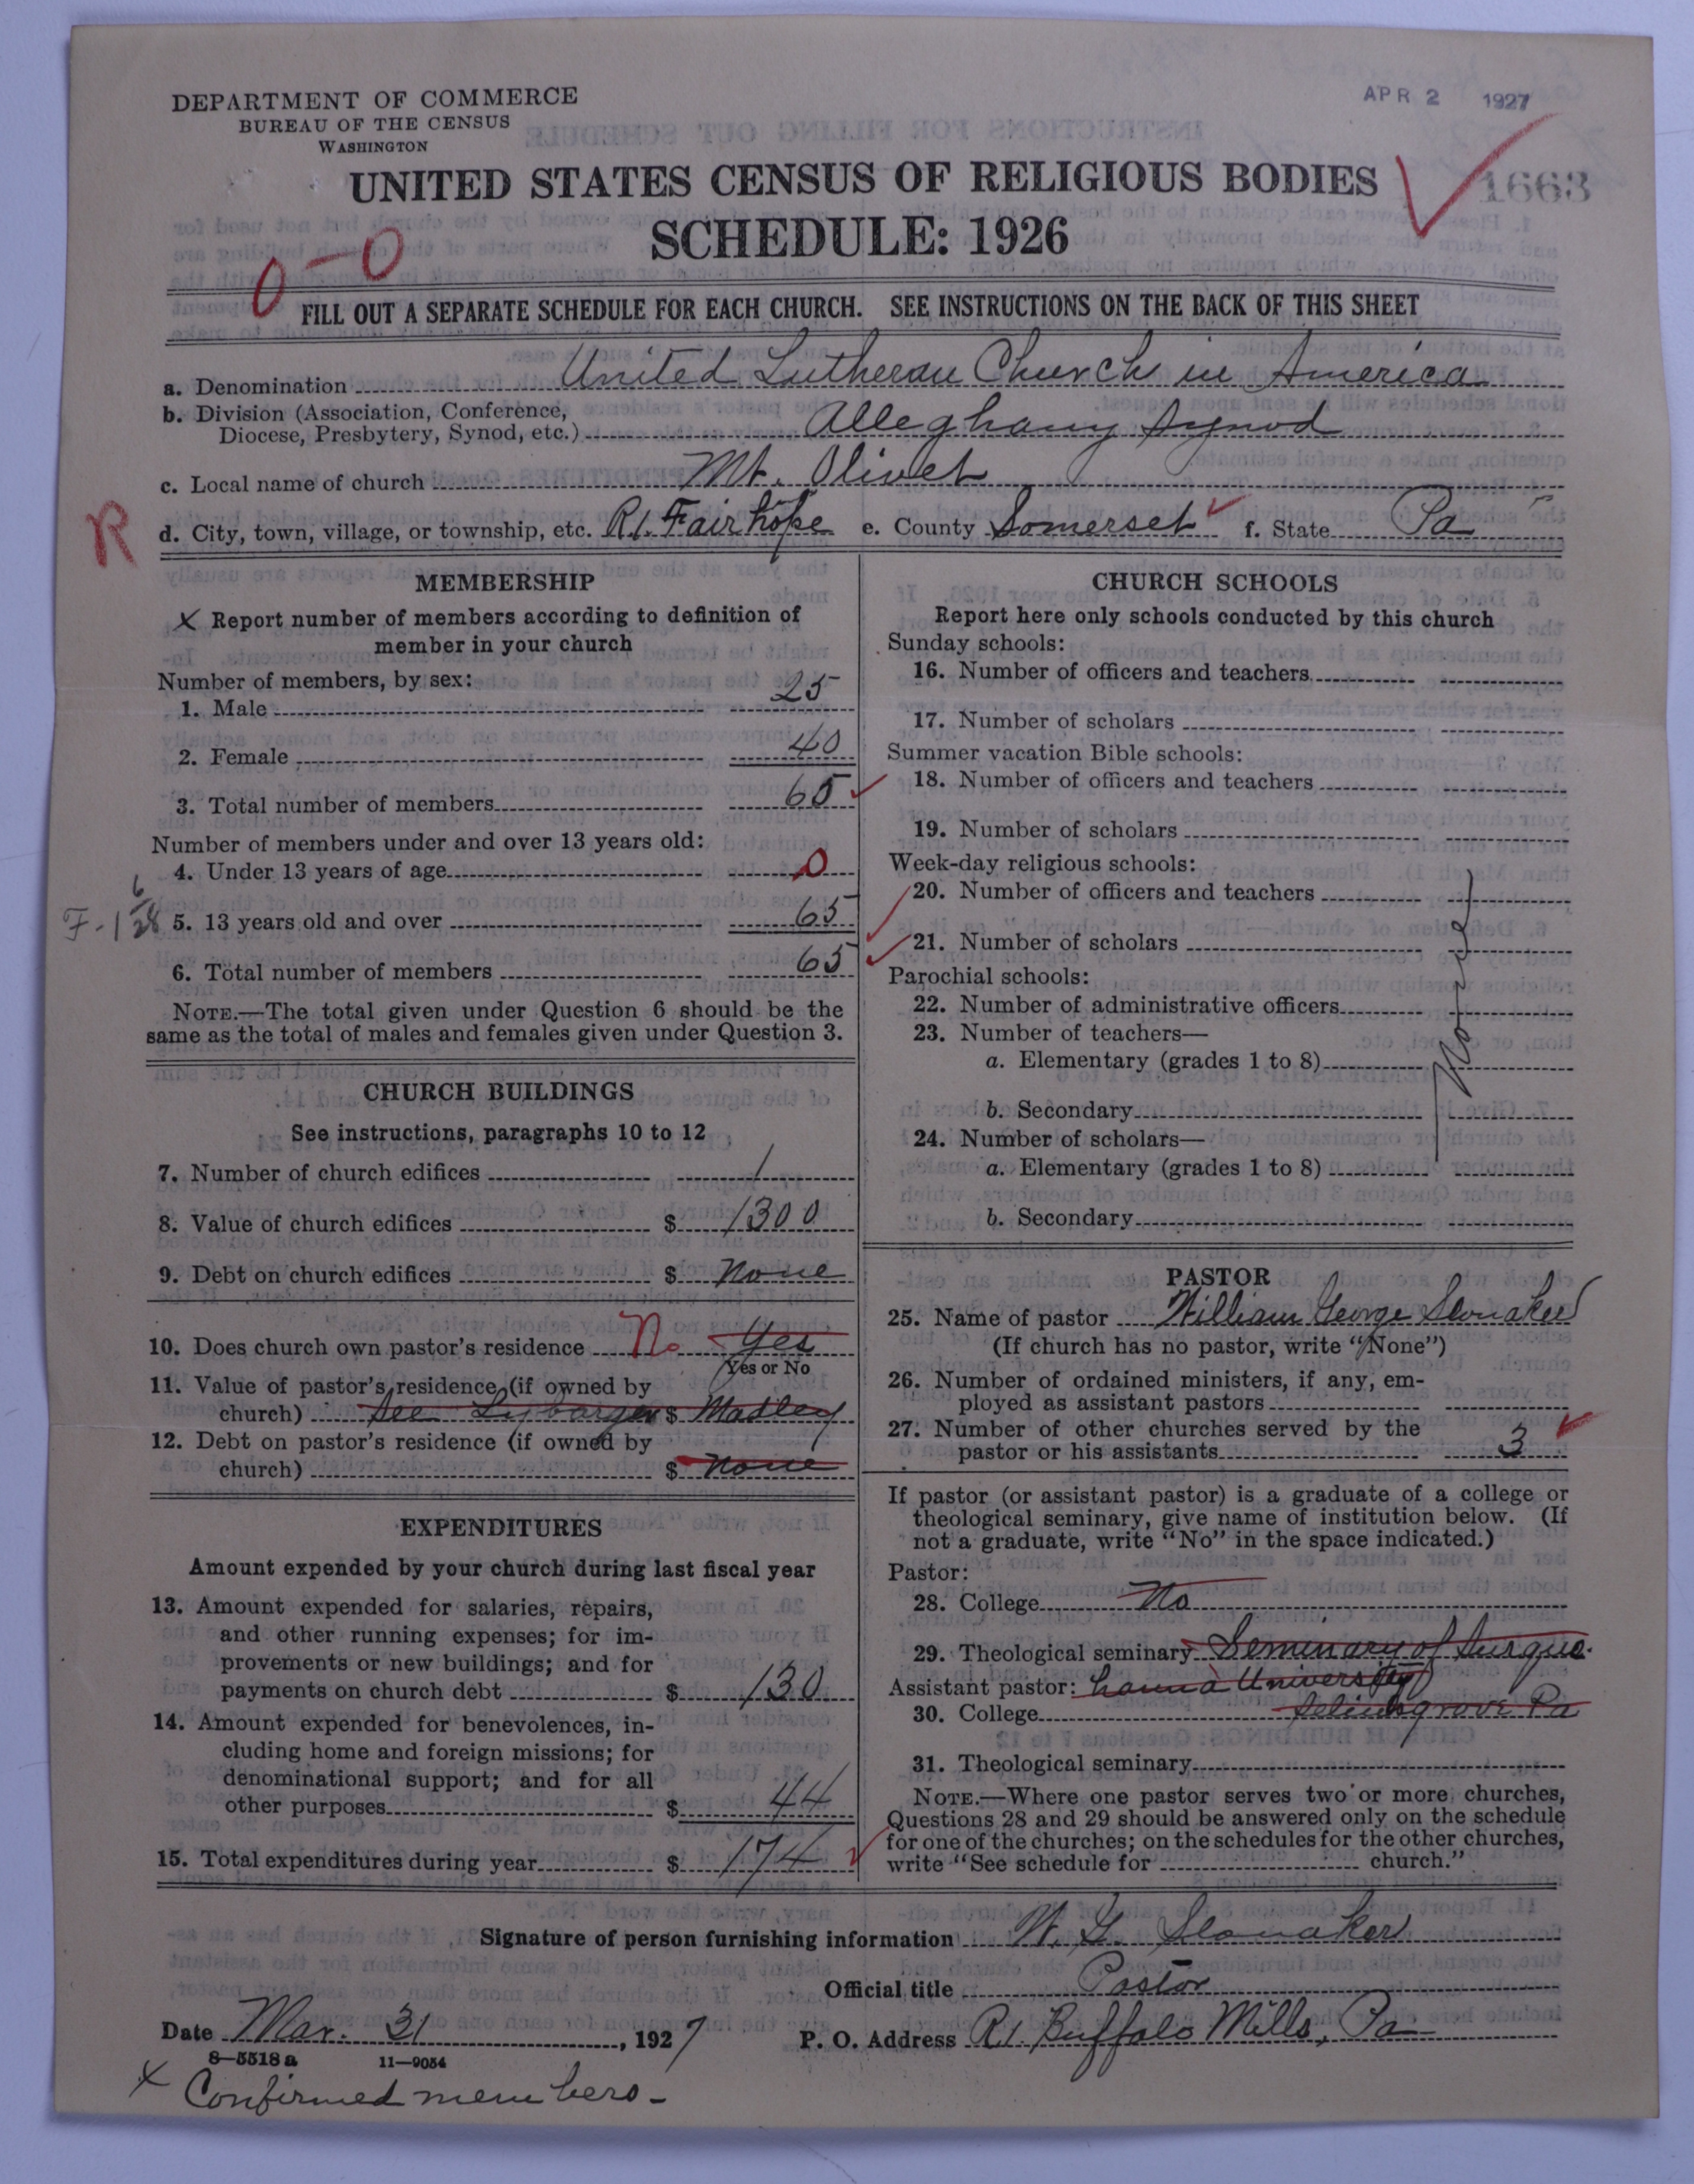 DEPARTMENT OF COMMERCE
BUREAU OF THE CENSUS
WASHINGTON
APR 2 1927
UNITED STATES CENSUS OF RELIGIOUS BODIES
1663
SCHEDULE: 1926
0-0
FILL OUT A SEPARATE SCHEDULE FOR EACH CHURCH. SEE INSTRUCTIONS ON THE BACK OF THIS SHEET
a. Denomination United Lutheran Church in America
b. Division (Association, Conference,
Diocese, Presbytery, Synod, etc.) Alleghany Synod
c. Local name of church Mt. Olivet
R
d. City, town, village, or township, etc. R.1. Fairhope e. County Somerset f. State Pa
MEMBERSHIP
X Report number of members according to definition of
member in your church
Number of members, by sex:
1. Male 25
2. Female 40
3. Total number of members 65
Number of members under and over 13 years old:
4. Under 13 years of age 0
5. 13 years old and over 65
6. Total number of members 65
NOTE.—The total given under Question 6 should be the
same as the total of males and females given under Question 3.
CHURCH BUILDINGS
See instructions, paragraphs 10 to 12
7. Number of church edifices 1
8. Value of church edifices $ 1300
9. Debt on church edifices $ None
10. Does church own pastor's residence No Yes
Yes or No
11. Value of pastor's residence (if owned by
church) See Lybarger $ Madley
12. Debt on pastor's residence (if owned by
church) $ None
EXPENDITURES
Amount expended by your church during last fiscal year
13. Amount expended for salaries, repairs,
and other running expenses; for im-
provements or new buildings; and for
payments on church debt $ 130
14. Amount expended for benevolences, in-
cluding home and foreign missions; for
denominational support; and for all
other purposes $ 44
15. Total expenditures during year $ 174
CHURCH SCHOOLS
Report here only schools conducted by this church
Sunday schools:
16. Number of officers and teachers
17. Number of scholars
Summer vacation Bible schools:
18. Number of officers and teachers
19. Number of scholars
Week-day religious schools:
20. Number of officers and teachers
21. Number of scholars
Parochial schools:
22. Number of administrative officers
23. Number of teachers—
a. Elementary (grades 1 to 8)
b. Secondary
24. Number of scholars—
a. Elementary (grades 1 to 8)
b. Secondary
None
PASTOR
25. Name of pastor William George Slonaker
(If church has no pastor, write "None")
26. Number of ordained ministers, if any, em-
ployed as assistant pastors
27. Number of other churches served by the
pastor or his assistants 3
If pastor (or assistant pastor) is a graduate of a college or
theological seminary, give name of institution below. (If
not a graduate, write "No" in the space indicated.)
Pastor:
28. College No
29. Theological seminary Seminary of Susque-
Assistant pastor: hanna University
30. College Selinsgrove Pa
31. Theological seminary
NOTE.—Where one pastor serves two or more churches,
Questions 28 and 29 should be answered only on the schedule
for one of the churches; on the schedules for the other churches,
write "See schedule for church."
Signature of person furnishing information W. G. Slonaker
Official title Pastor
Date Mar. 31, 1927 P. O. Address R1. Buffalo Mills, Pa
8—5518 a 11—9054
X Confirmed members-